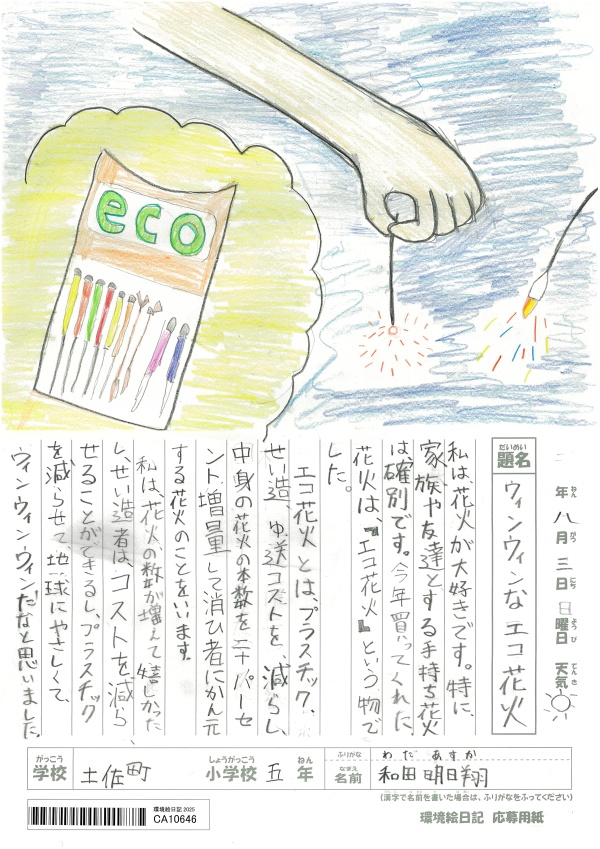 eco
だいめい
題名
ウィンウィンなエコ花火
年 八月 三日 日曜日 天気
ねん がつ にち ようび てんき
私は花火が大好きです。特に、
家族や友達とする手持ち花火
は、確別です。今年買ってくれた
花火は、『エコ花火』という物で
した。
エコ花火とは、プラスチック、
せい造、ゆ送コストを、減らし、
中身の花火の本数を二十パーセ
ント増量して消ひ者にかん元
する花火のことをいいます。
私は、花火の数が増えて嬉しかった
し、せい造者は、コストを減ら
せることができるし、プラスチック
を減らせて地球にやさしくて、
ウィンウィンウィンだなと思いました
がっこう
学校
土佐町
しょうがっこう
小学校
五
ねん
年
ふりがな
わだ あすか
なまえ
名前
和田 明日翔
(漢字で名前を書いた場合は、ふりがなをふってください)
環境絵日記 2025
CA10646
環境絵日記 応募用紙